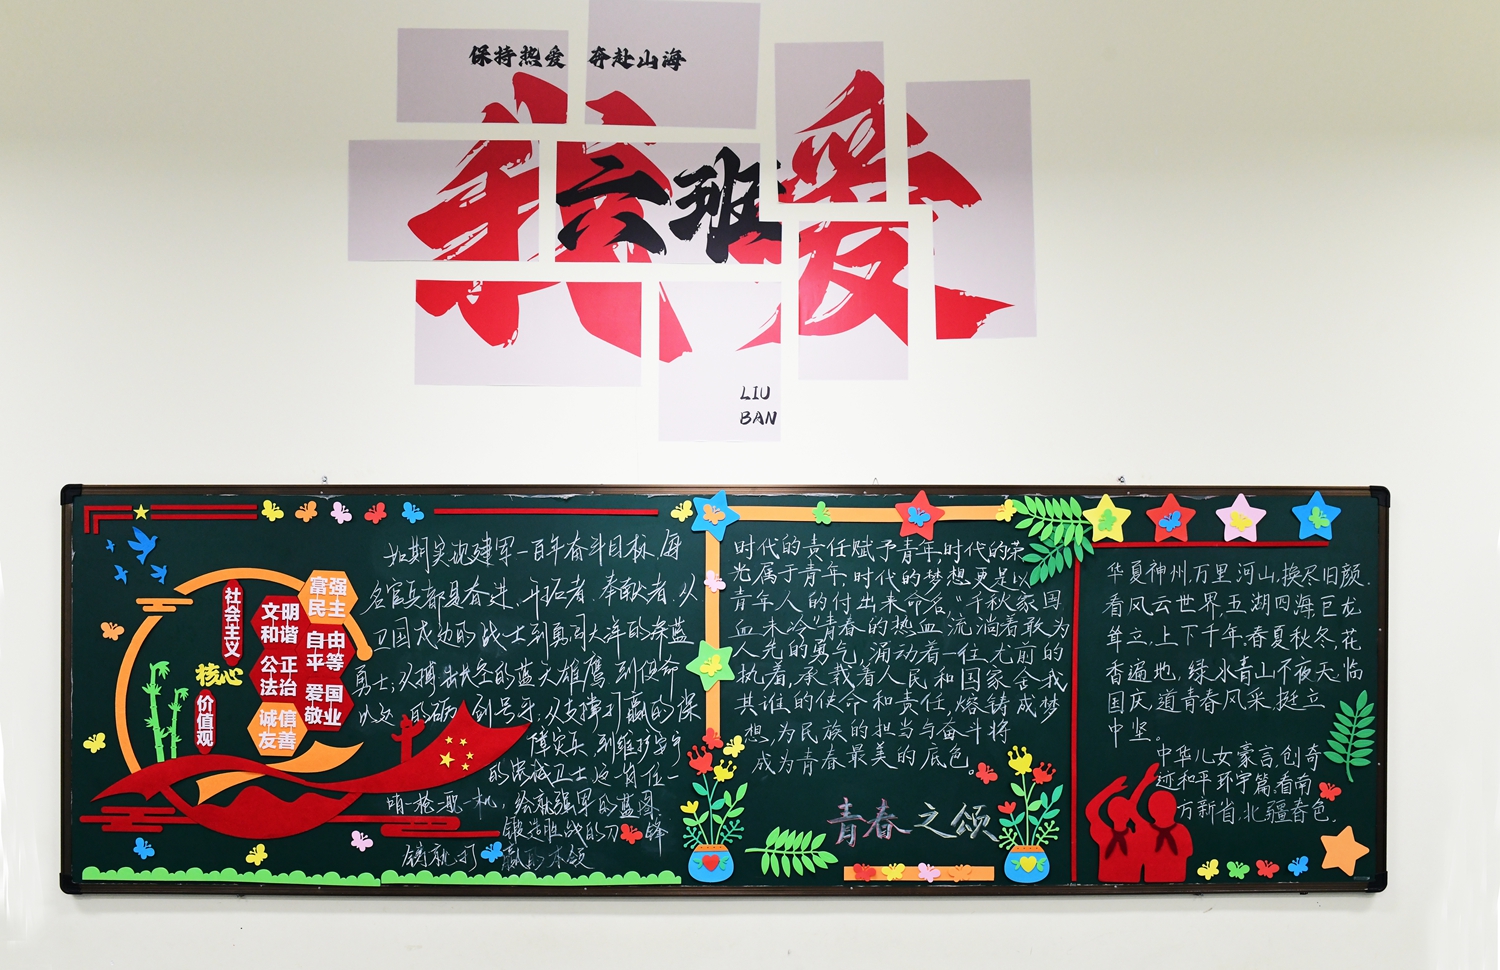 保持热爱 奔赴山海
我爱
六班
LIU
BAN
富强
民主
文明
和谐
自由
平等
公正
法治
爱国
敬业
诚信
友善
社会主义
核心
价值观
如期实现建军一百年奋斗目标,每
名官兵都是奋进、开拓者、奉献者.从
卫国戍边的战士到勇闯大洋的深蓝
勇士,从搏击长空的蓝天雄鹰,到使命
剑号手.从支撑打赢的保
障尖兵,到维护
的忠诚卫士
哨一枪一机,绘就强军的蓝图
锻造胜战的刀锋
铸就打赢的本领
时代的责任赋予青年,时代的荣
光属于青年,时代的梦想更是以
青年人的付出来命名."千秋家国
血未冷"青春的热血,流淌着敢为
人先的勇气,涌动着一往无前的
执着,承载着人民和国家舍我
其谁的使命和责任,熔铸成梦
想,为民族的担当与奋斗将
成为青春最美的底色。
青春之颂
华夏神州,万里河山,换尽旧颜.
看风云世界,五湖四海,巨龙
耸立.上下千年,春夏秋冬,花
香遍地,绿水青山不夜天.临
国庆,道青春风采,挺立
中坚。
中华儿女豪言,创奇
迹和平环宇篇.看南
方新省,北疆春色,